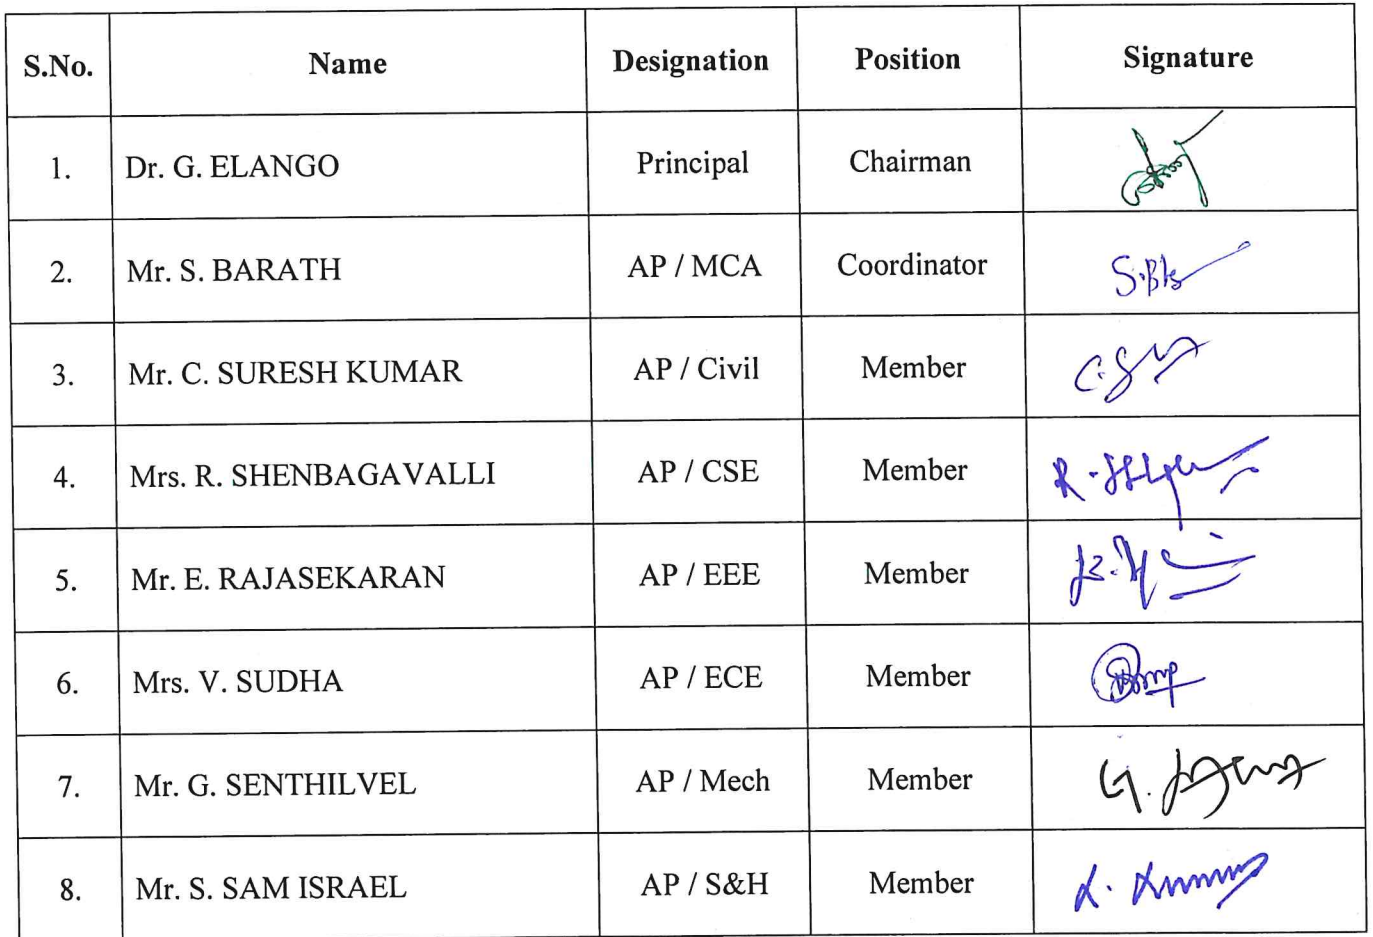 S.No. Name Designation Position Signature
1. Dr. G. ELANGO Principal Chairman
2. Mr. S. BARATH AP / MCA Coordinator
3. Mr. C. SURESH KUMAR AP / Civil Member
4. Mrs. R. SHENBAGAVALLI AP / CSE Member
5. Mr. E. RAJASEKARAN AP / EEE Member
6. Mrs. V. SUDHA AP / ECE Member
7. Mr. G. SENTHILVEL AP / Mech Member
8. Mr. S. SAM ISRAEL AP / S&H Member